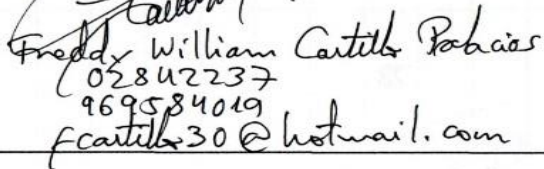 Freddy William Castillo Palacios
02842237
969584019
fcastillo30@hotmail.com